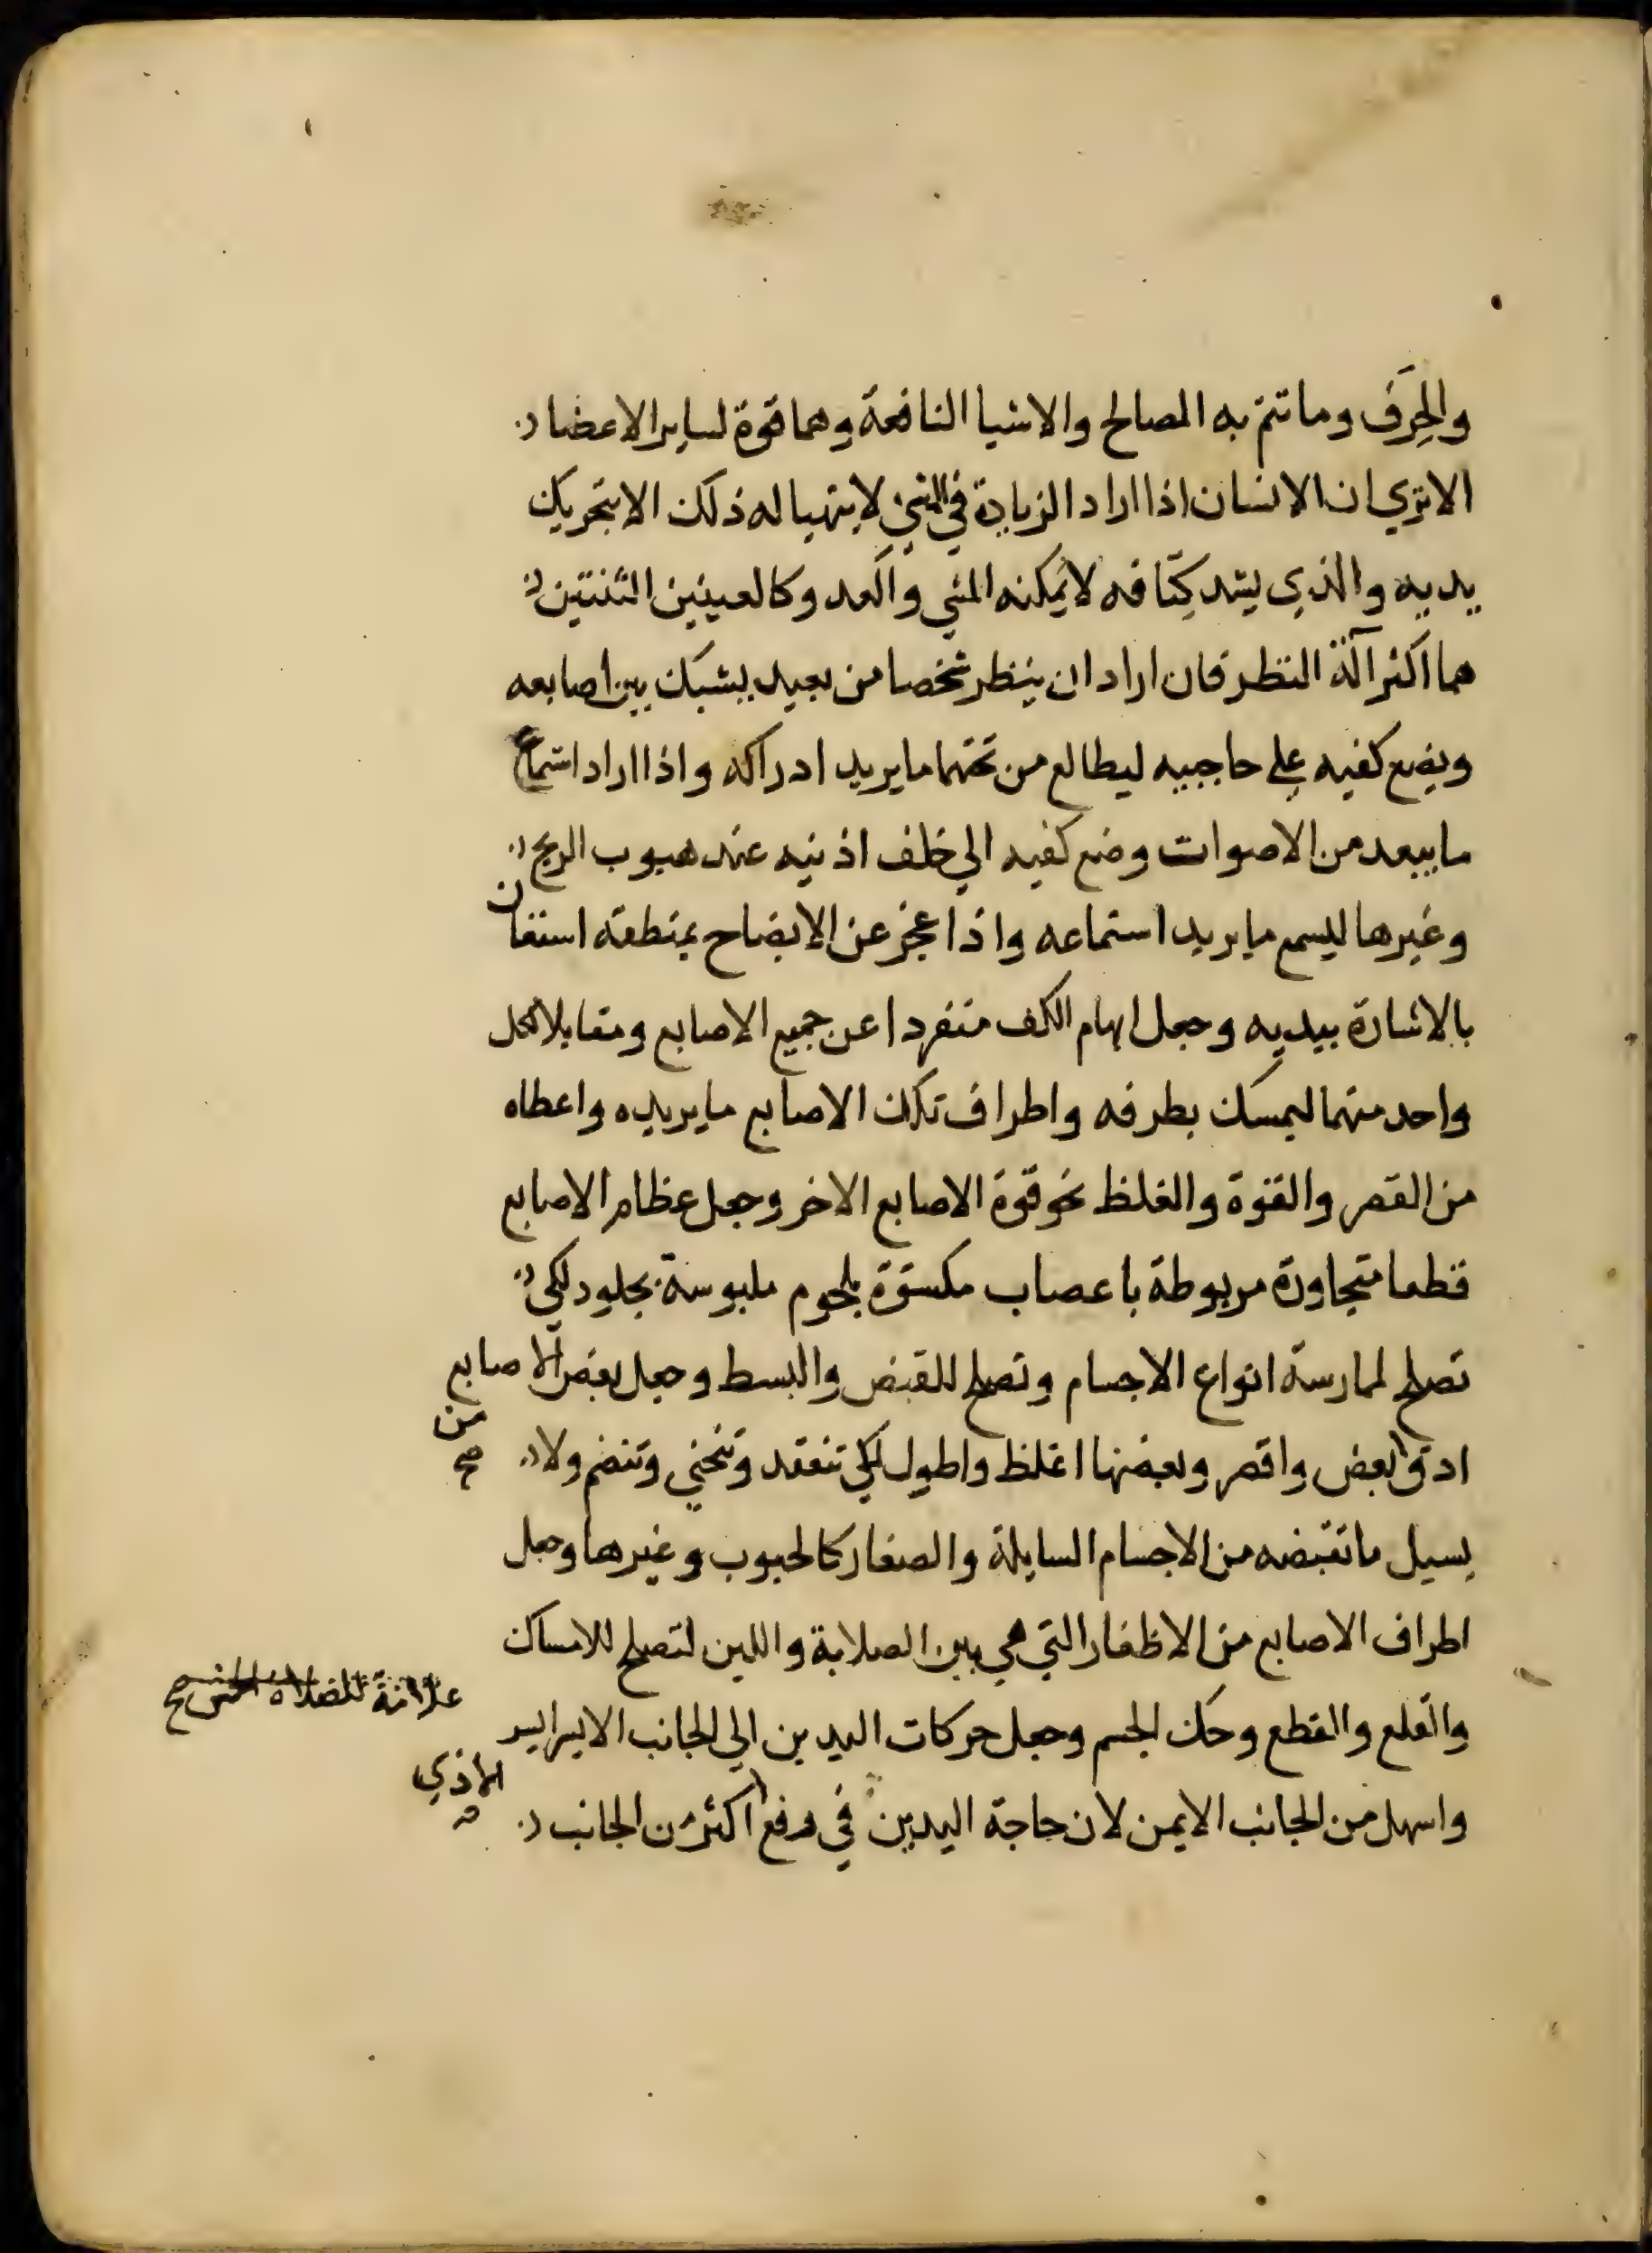 والحِرَف وما تتم به المصالح والاشيا النافعة وهما قوة لساير الاعضا
الا تري ان الانسان اذا اراد الزيادة في المشي لا يتهيا له ذلك الا بتحريك
يديه والذي يشد كتافه لا يمكنه المشي والعدو كالعينين الثنتين
هما اكثر آلة النظر فان اراد ان ينظر شخصا من بعيد يشبك بين اصابعه
ويضع كفيه علي حاجبيه ليطالع من تحتهما ما يريد ادراكه واذا اراد استماع
ما يبعد من الاصوات وضع كفيه الي خلف اذنيه عند هبوب الريح
وغيرها ليسمع ما يريد استماعه واذا عجز عن الايضاح بمنطقه استعان
بالاشارة بيديه وجعل ابهام الكف منفردا عن جميع الاصابع ومقابلا لكل
واحد منهما ليمسك بطرفه واطراف تلك الاصابع ما يريده واعطاه
من القصر والقوة والغلظ نحو قوة الاصابع الاخر وجعل عظام الاصابع
قطعا متجاورة مربوطة باعصاب مكسوة بلحوم ملبوسة بجلود لكي
تصلح لممارسة انواع الاجسام وتصلح للقبض والبسط وجعل بعض الاصابع
ادق من بعض واقصر وبعضها اغلظ واطول لكي تنعقد وتنحني وتنضم ولا
صح
يسيل ما تقبضه من الاجسام السايلة والصغار كالحبوب وغيرها وجعل
اطراف الاصابع من الاظفار التي هي بين الصلابة واللين لتصلح للامساك
والقلع والقطع وحك الجسم وجعل حركات اليدين الي الجانب الايسر ايسر
واسهل من الجانب الايمن لان حاجة اليدين في دفع الماذي اكثر من الجانب